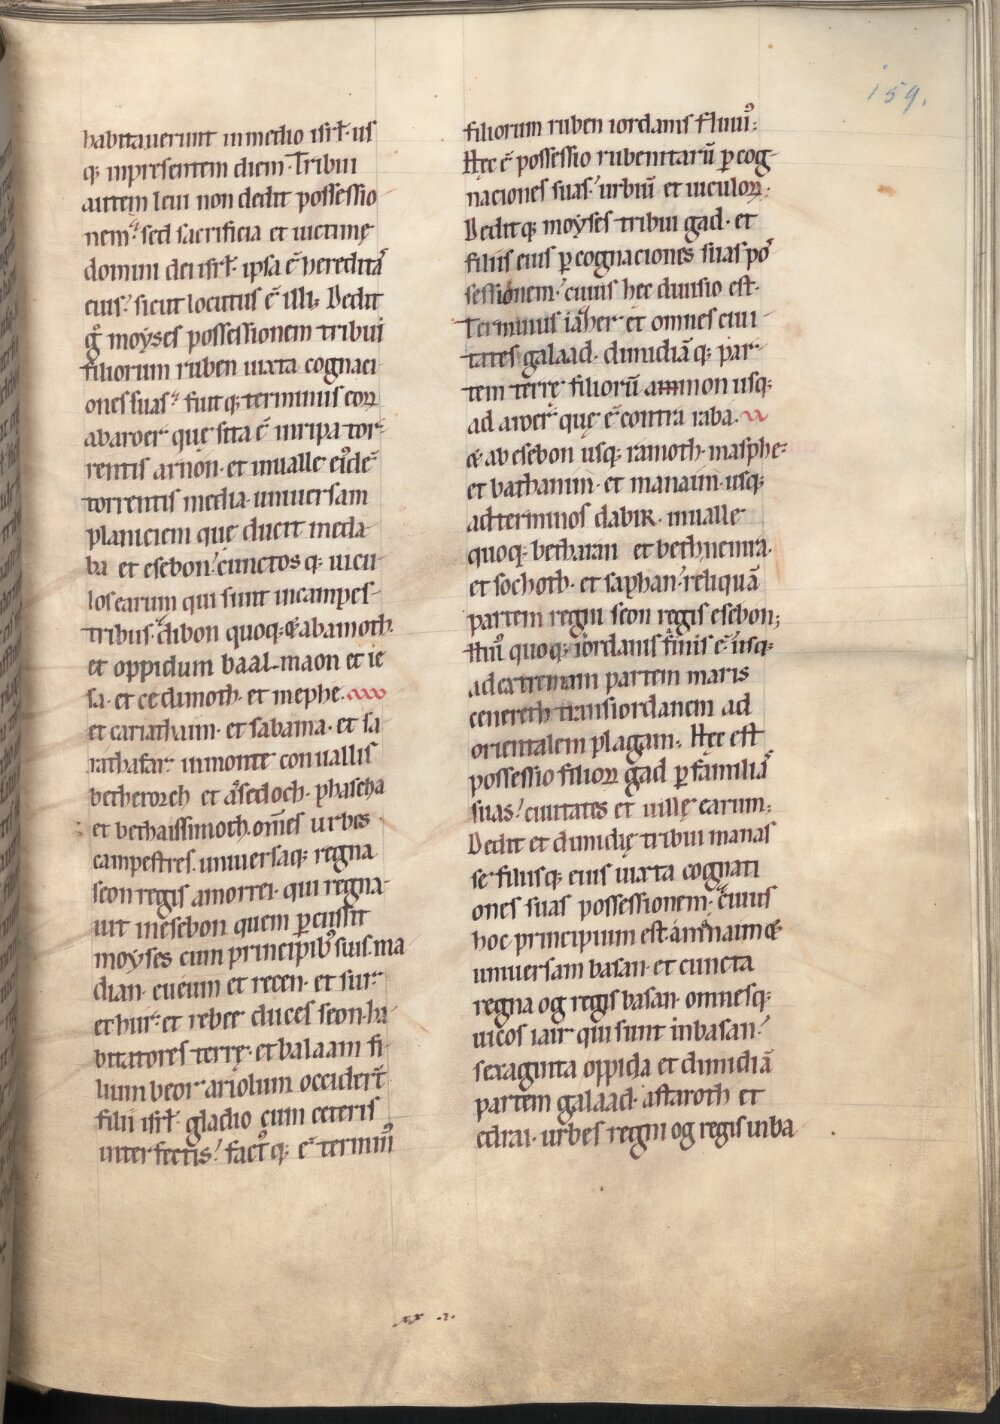 159.
habitauerunt inmedio isrł· us
q; inpresentem diem· Tribui
autem leui non dedit possessio
nem· sed sacrificia et uictimę
domini dei isrł· ipsa ē heredita᷒
eius· sicut locutus ē illi; Dedit
g̊ moẏses possessionem tribui
filiorum ruben iuxta cognaci
ones suas· fuitq; terminus eoꝝ
abaroer quę sita ē inripa tor
rentis arnon· et inualle eiꝰdē
torrentis media· uniuersam
planiciem quę ducit meda
ba et esebon· cunctosq; uicu
los earum qui sunt incampes
tribus· dibon quoq; & abamoth
et oppidum baal-maon et ie
sa· et cedimoth· et mephe·
et cariathaim· et sabama· et sa
rathasar· inmonte conuallis
betheroeh et asedoch· phascha
et bethaissimoth· om̄es urbes
campestres· uniuersaq; regna
seon regis amorrei· qui regna
uit inesebon quem ꝑcussit
moẏses cum principibꝰ suis· ma
dian· eueum et recen· et sur·
et hur· et rebee duces seon· ha
bitatores terrę· et balaam fi
lium beor ariolum occiderт̄
filii isrł· gladio cum ceteris
interfectis· factꝰq; ē terminꝰ
filiorum ruben iordanis fluuiꝰ;
Hęc ē possessio rubenitarū ꝑ cog
naciones suas· urbiū et uiculoꝝ·
Deditq; moẏses tribui gad· et
filiis eius ꝑ cognaciones suas pos
sessionem· cuius hec diuisio est·
Terminus iazher et omnes ciui
tates galaad· dimidiāq; par
tem terrę filiorū ammon usq;
ad aroer quę ē contra raba·
& ab esebon usq; ramoth· masphe·
et bathanim· et manaim· usq;
ad terminos dabir· inualle
quoq; betharan et bethnemra·
et sochoth· et saphan· reliquā
partem regni seon regis esebon;
Huiꝰ quoq; iordanis finis ē· usq;
ad extremam partem maris
cenereth transiordanem ad
orientalem plagam; Hęc est
possessio filioꝝ gad ꝑ familia᷒
suas· ciuitates et uillę earum;
Dedit et dimidię tribui manas
se· filiisq; eius iuxta cognati
ones suas possessionem· cuius
hoc principium est· ammanaim &
uniuersam basan· et cuncta
regna og regis basan· omnesq;
uicos iair qui sunt inbasan·
sexaginta oppida et dimidiā
partem galaad· astaroth et
edrai· urbes regni og regis inba